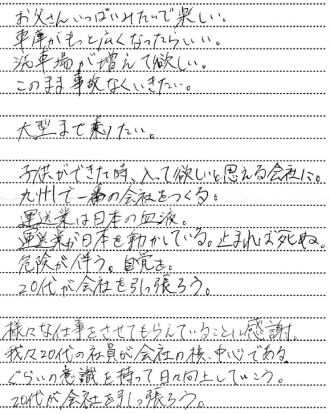 お父さんいっぱいみたいで楽しい。
車庫がもっと広くなったらいい。
洗車場が増えて欲しい。
このまま事故なくいきたい。
大型まで乗りたい。
子供ができた時、入って欲しいと思える会社に。
九州で一番の会社をつくる。
運送業は日本の血液。
運送業が日本を動かしている。止まれば死ぬ。
危険が伴う。自覚を。
20代が会社を引っ張ろう。
様々な仕事をさせてもらえていることに感謝。
我々20代の社員が会社の核、中心である
ぐらいの意識を持って日々向上していこう。
20代が会社を引っ張ろう。